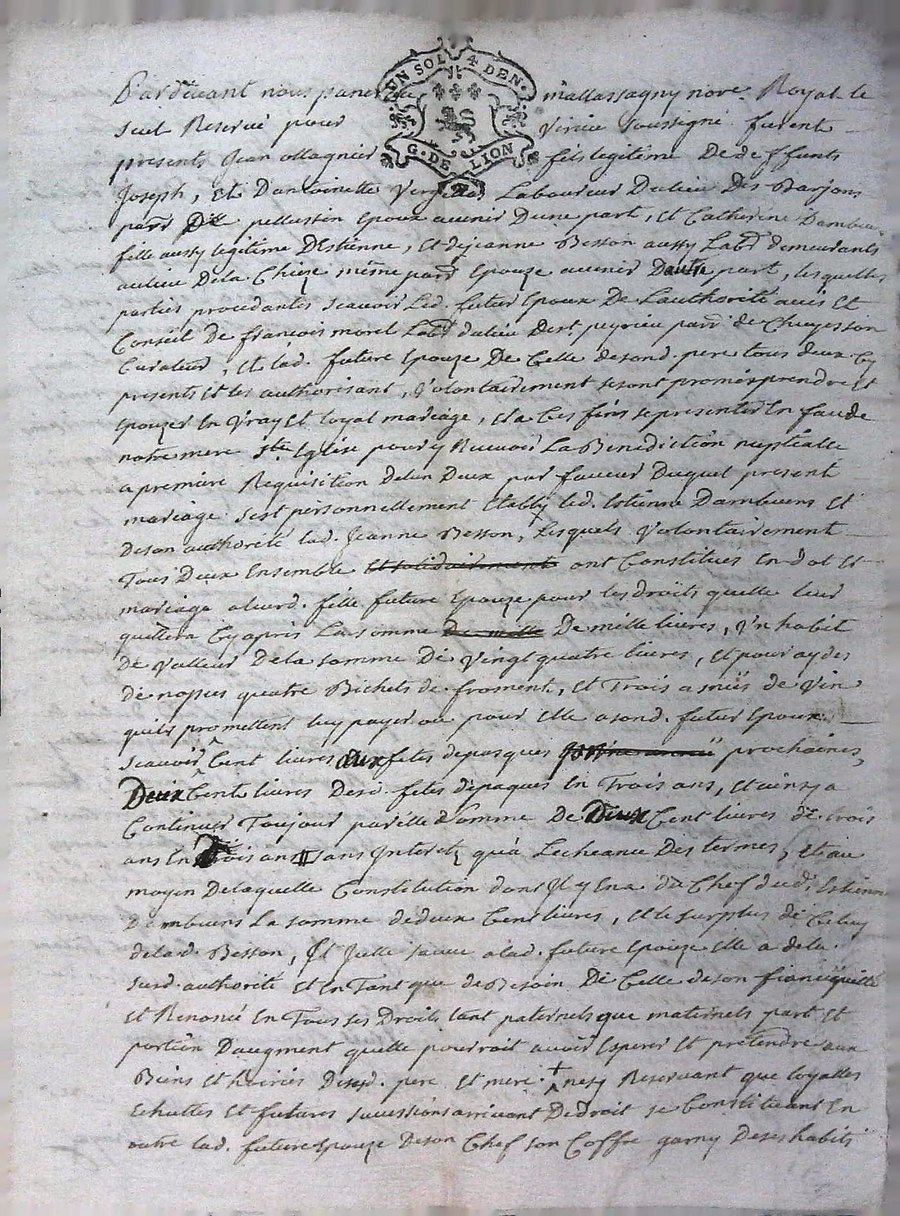 UN SOL 4 DEN.
G. DE LION
Pardevant nous mallassagny nore. Royal le
seul Reservé pour Virieu soussigné furent
presents Jean fils legitime De deffunts
Joseph, Et D'antoinette Laboureur Dulieu Des Barjons
parr De pellussin Epoux avenir Dune part, Et Catherine Dambu
fille aussy legitime D'Estienne, Et de jeanne Besson aussy Labrd demeurants
aulieu Dela Chieze même parr Epouze avenir Dautre part, lesquelles
parties procedantes scavoir Led. futur Epoux De Lauthorité avis Et
Conseil De françois morel Labrd dulieu De st peyrieu parr de Chuyesson
Curateur, Et lad. future Epouze De Celle desond. pere tous deux Cy
presents Et les authorisant, Volontairement se sont promis prendre Et
Epouzer En Vray Et loyal mariage, Et a Ces fins se presenter En face de
notre mere ste Eglise pour y Recevoir La Benediction nuptialle
a premiere Requisition Delun Deux par faveur Duquel present
mariage sest personnellement Etably led. Estienne Dambuens Et
De son authorité lad. Jeanne Besson, Lesquels Volontairement
Tous Deux Ensemble Et solidairement ont Constitués En dot Et
mariage aleurd. fille future Epouze pour les Droits quelle leur
quittera Cy apres La somme de mille De mille livres, Vn habit
De Valleur Dela somme De Vingt quatre livres, Et pour aydes
de nopces quatre Bichets de froment, Et Trois asnées de Vin
quils promettent luy payer ou pour Elle asond. futur Epoux
scavoir Cent livres aux fetes depasques prochaines,
Deux Cent livres Desd. fetes depaques En Trois ans, Et ainsy a
Continuer Toujour pareille somme De Deux Cent livres de trois
ans En Trois ans sans Interets qua Lecheance Des termes, Et au
moyen Delaquelle Constitution dont Il y En a du Chef dud. Estienne
Dambuens La somme dedeux Cent livres, Et le surplus de Celuy
delad. Besson, Et Icelle sauve alad. future Epouze Elle a dela
susd. authorité Et En Tant que de Besoin De Celle de son fiancé quitté
Et Renoncé En Tous ses Droits tant paternels que maternels part Et
portion Daugment quelle pourroit avoir Esperer Et pretendre aux
Biens Et hoiries Desesd. pere Et mere + nesy Reservant que loyalles
Echuttes Et futures sucessions arrivant De Droit se Constituant En
outre lad. future Epouze Deson Chef son Coffre garny Deses habits